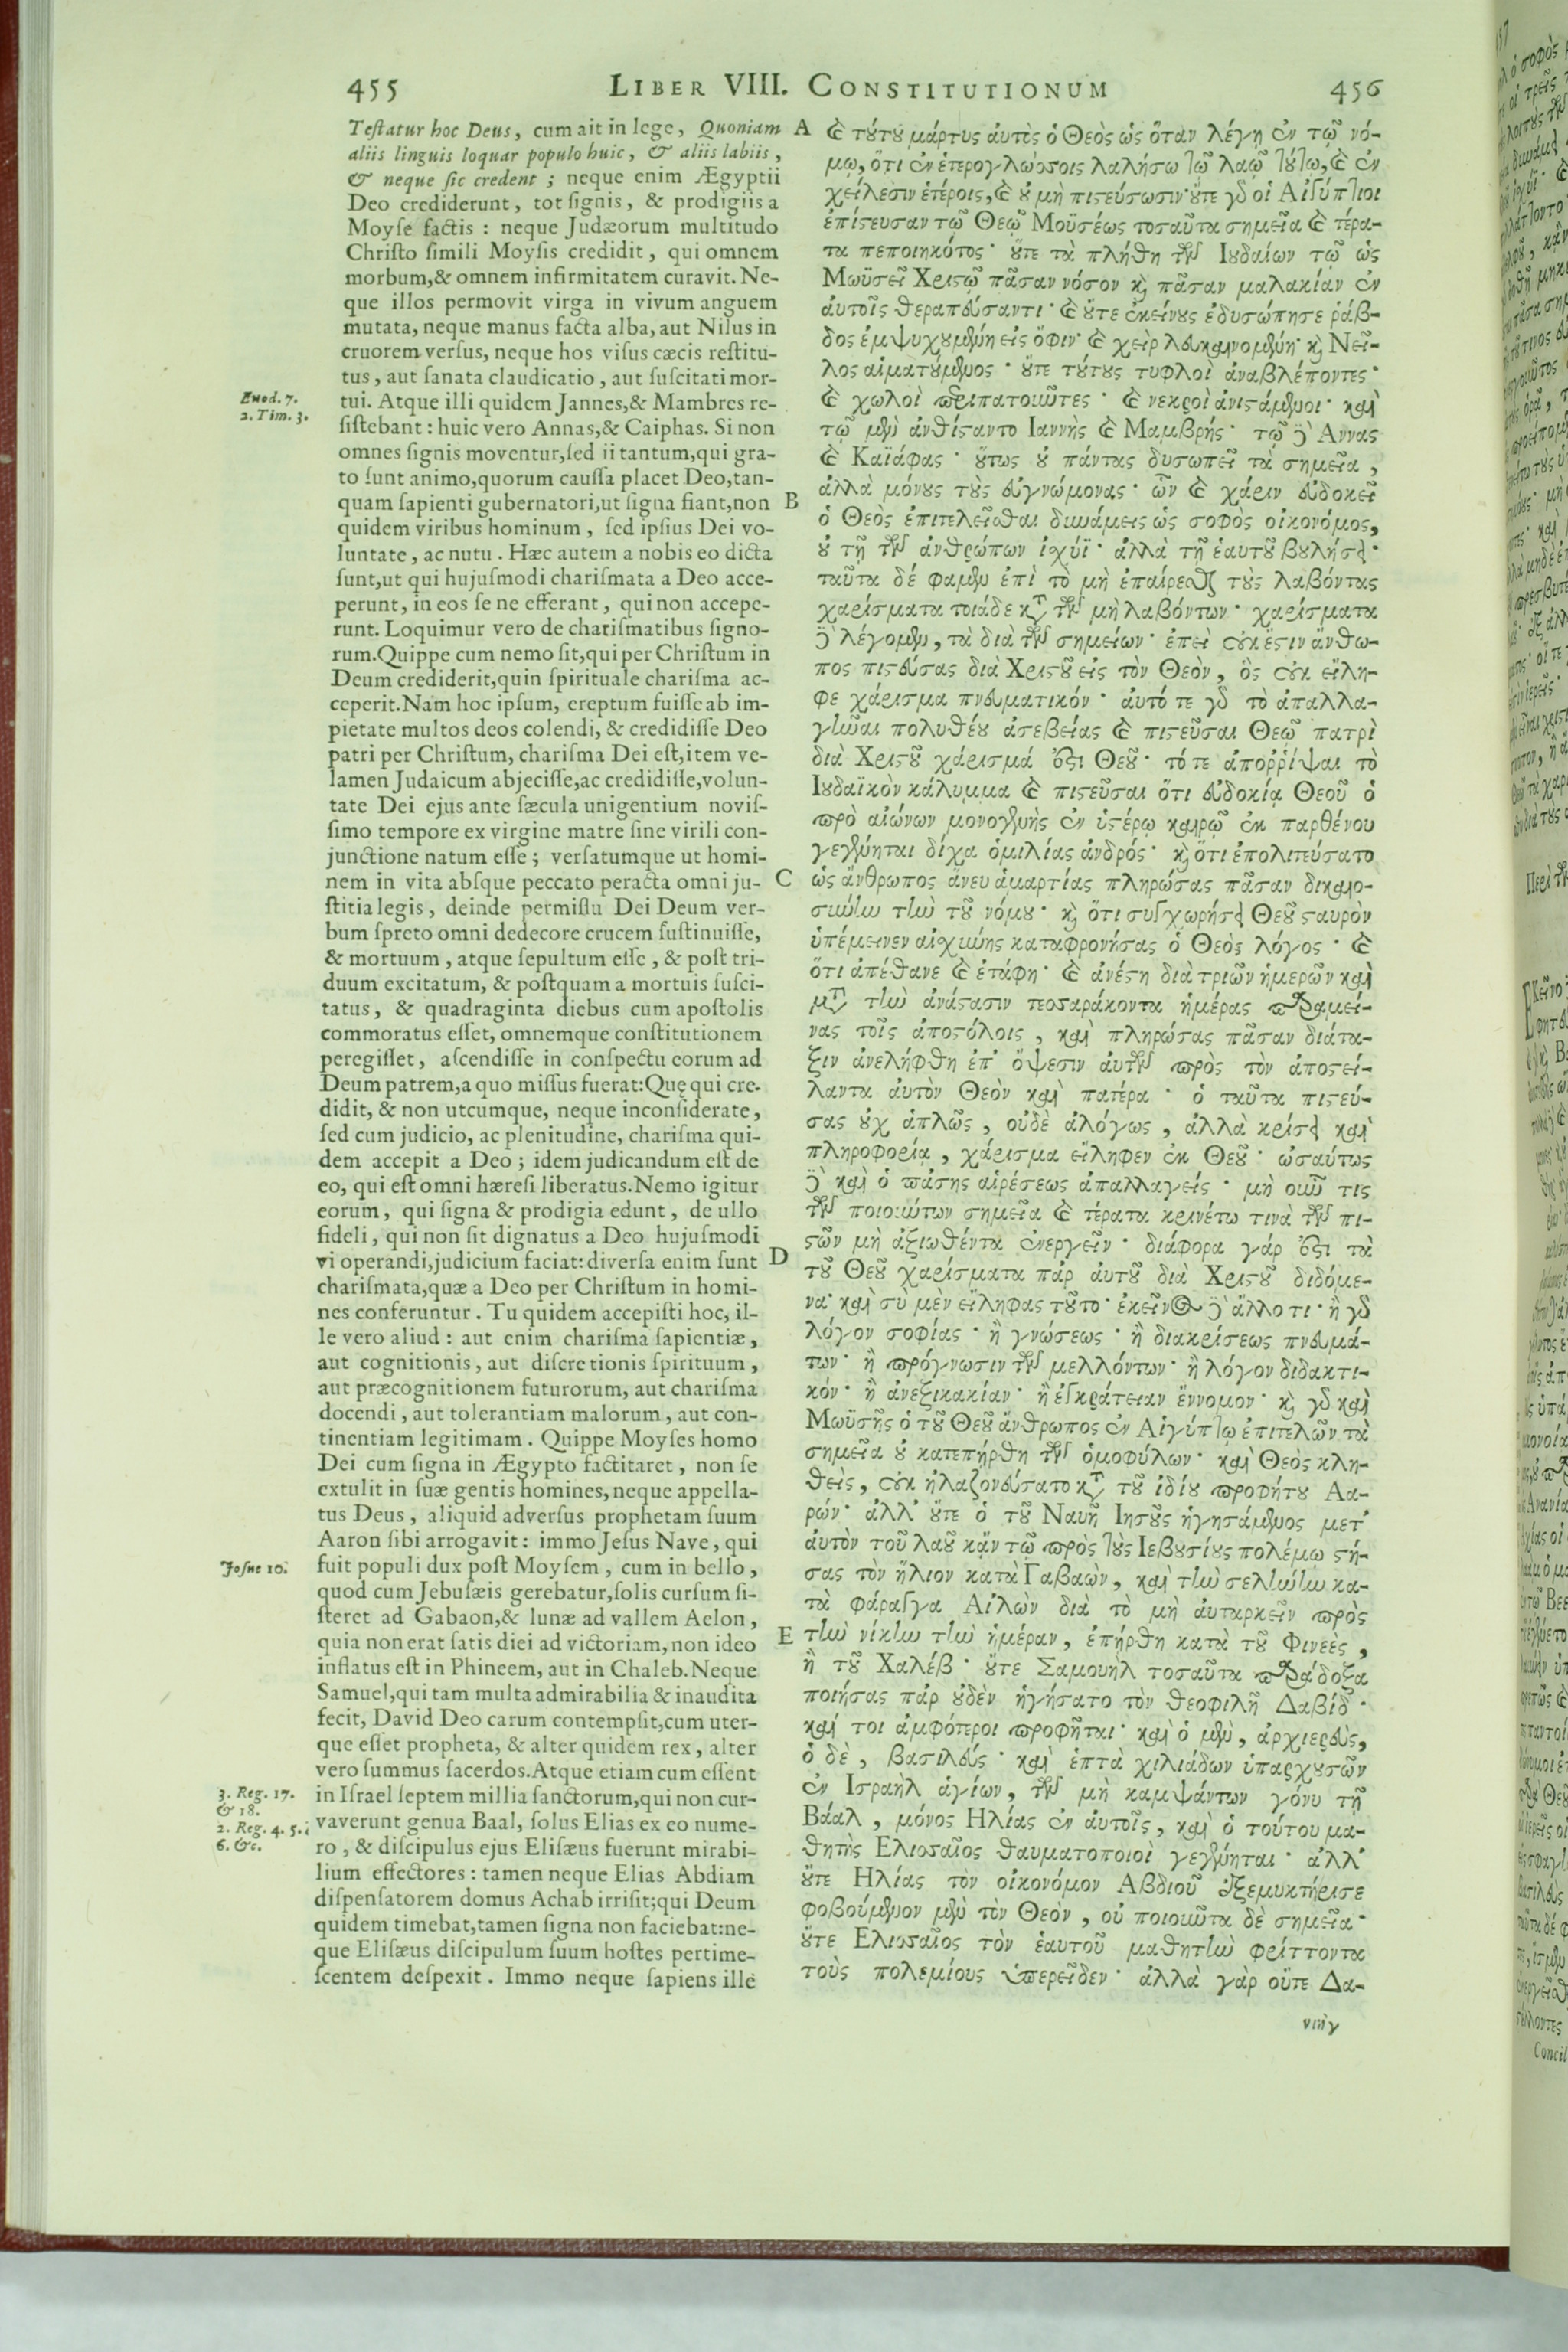 455 LIBER VIII. CONSTITUTIONUM 456
Teſtatur hoc Deus, cum ait in lege, Quoniam
aliis linguis loquar populo huic, & aliis labiis,
& neque ſic credent; neque enim Ægyptii
Deo crediderunt, tot ſignis, & prodigiis a
Moyſe factis: neque Judæorum multitudo
Chriſto ſimili Moyſis credidit, qui omnem
morbum,& omnem infirmitatem curavit. Ne-
que illos permovit virga in vivum anguem
mutata, neque manus facta alba, aut Nilus in
cruorem verſus, neque hos viſus cæcis reſtitu-
tus, aut ſanata claudicatio, aut ſuſcitati mor-
Exod. 7.
2. Tim. 3.
tui. Atque illi quidem Jannes,& Mambres re-
ſiſtebant: huic vero Annas,& Caiphas. Si non
omnes ſignis moventur,ſed ii tantum,qui gra-
to ſunt animo,quorum cauſſa placet Deo,tan-
quam ſapienti gubernatori,ut ſigna fiant,non
quidem viribus hominum, ſed ipſius Dei vo-
luntate, ac nutu. Hæc autem a nobis eo dicta
ſunt,ut qui hujuſmodi chariſmata a Deo acce-
perunt, in eos ſe ne efferant, qui non accepe-
runt. Loquimur vero de chariſmatibus ſigno-
rum.Quippe cum nemo ſit,qui per Chriſtum in
Deum crediderit,quin ſpirituale chariſma ac-
ceperit.Nam hoc ipſum, ereptum fuiſſe ab im-
pietate multos deos colendi, & credidiſſe Deo
patri per Chriſtum, chariſma Dei eſt,item ve-
lamen Judaicum abjeciſſe,ac credidiſſe,volun-
tate Dei ejus ante ſæcula unigentium noviſ-
ſimo tempore ex virgine matre ſine virili con-
junctione natum eſſe; verſatumque ut homi-
nem in vita abſque peccato peracta omni ju-
ſtitia legis, deinde permiſſu Dei Deum ver-
bum ſpreto omni dedecore crucem ſuſtinuiſſe,
& mortuum, atque ſepultum eſſe, & poſt tri-
duum excitatum, & poſtquam a mortuis ſuſci-
tatus, & quadraginta diebus cum apoſtolis
commoratus eſſet, omnemque conſtitutionem
peregiſſet, aſcendiſſe in conſpectu eorum ad
Deum patrem,a quo miſſus fuerat:Quę qui cre-
didit, & non utcumque, neque inconſiderate,
ſed cum judicio, ac plenitudine, chariſma qui-
dem accepit a Deo; idem judicandum eſt de
eo, qui eſt omni hæreſi liberatus.Nemo igitur
eorum, qui ſigna & prodigia edunt, de ullo
fideli, qui non ſit dignatus a Deo hujuſmodi
vi operandi,judicium faciat:diverſa enim ſunt
chariſmata,quæ a Deo per Chriſtum in homi-
nes conferuntur. Tu quidem accepiſti hoc, il-
le vero aliud: aut enim chariſma ſapientiæ,
aut cognitionis, aut diſcretionis ſpirituum,
aut præcognitionem futurorum, aut chariſma
docendi, aut tolerantiam malorum, aut con-
tinentiam legitimam. Quippe Moyſes homo
Dei cum ſigna in Ægypto factitaret, non ſe
extulit in ſuæ gentis homines, neque appella-
tus Deus, aliquid adverſus prophetam ſuum
Aaron ſibi arrogavit: immo Jeſus Nave, qui
Joſue 10.
fuit populi dux poſt Moyſem, cum in bello,
quod cum Jebuſæis gerebatur,ſolis curſum ſi-
ſteret ad Gabaon,& lunæ ad vallem Aelon,
quia non erat ſatis diei ad victoriam, non ideo
inflatus eſt in Phineem, aut in Chaleb.Neque
Samuel,qui tam multa admirabilia & inaudita
fecit, David Deo carum contempſit,cum uter-
que eſſet propheta, & alter quidem rex, alter
vero ſummus ſacerdos.Atque etiam cum eſſent
3. Reg. 17.
& 18.
2. Reg. 4. 5.
6. &c.
in Iſrael ſeptem millia ſanctorum,qui non cur-
vaverunt genua Baal, ſolus Elias ex eo nume-
ro, & diſcipulus ejus Eliſæus fuerunt mirabi-
lium effectores: tamen neque Elias Abdiam
diſpenſatorem domus Achab irriſit;qui Deum
quidem timebat,tamen ſigna non faciebat:ne-
que Eliſæus diſcipulum ſuum hoſtes pertime-
ſcentem deſpexit. Immo neque ſapiens ille
A
B
C
D
E
ϗ τούτου μάρτυς αὐτὸς ὁ Θεὸς ὡς ὅταν λέγη ἐν τῷ νό-
μῳ, ὅτι ἐν ἑτερογλώσσοις λαλήσω τῷ λαῷ τούτῳ, ϗ ἐν
χείλεσιν ἑτέροις, ϗ οὐ μὴ πιστεύσωσιν· οὔτε γὰρ οἱ Αἰγύπτιοι
ἐπίστευσαν τῷ Θεῷ Μοϋσέως τοσαῦτα σημεῖα ϗ τέρα-
τα πεποιηκότος· οὔτε τὰ πλήθη τῶν Ιουδαίων τῷ ὡς
Μωϋσεῖ Χριστῷ πᾶσαν νόσον ϗ πᾶσαν μαλακίαν ἐν
αὐτοῖς θεραπεύσαντι· ϗ οὔτε ἐκείνους ἐδυσώπησε ράβ-
δος ἐμψυχουμένη εἰς ὄφιν· ϗ χεὶρ λευκαινομένη· ϗ Νεῖ-
λος αἱματούμενος· οὔτε τούτους τυφλοὶ ἀναβλέποντες·
ϗ χωλοὶ περιπατοῦντες· ϗ νεκροὶ ἀνιστάμενοι· καὶ
τῷ μὲν ἀνθίσταντο Ιαννὴς ϗ Μαμβρής· τῷ δὲ Αννας
ϗ Καϊάφας· οὕτως οὐ πάντας δυσωπεῖ τὰ σημεῖα,
ἀλλὰ μόνους τοὺς εὐγνώμονας· ὧν ϗ χάριν εὐδοκεῖ
ὁ Θεὸς ἐπιτελεῖσθαι δυνάμεις ὡς σοφὸς οἰκονόμος,
οὐ τῇ τῶν ἀνθρώπων ἰχύϊ· ἀλλὰ τῇ ἑαυτοῦ βουλήσει·
ταῦτα δέ φαμεν ἐπὶ τὸ μὴ ἐπαίρεσθαι τοὺς λαβόντας
χαρίσματα τοιάδε κατὰ τῶν μὴ λαβόντων· χαρίσματα
δὲ λέγομεν, τὰ διὰ τῶν σημείων· ἐπεὶ οὐκ ἔστιν ἄνθω-
πος πιστεύσας διὰ Χριστοῦ εἰς τὸν Θεὸν, ὃς οὐκ εἴλη-
φε χάρισμα πνευματικόν· αὐτό τε γὰρ τὸ ἀπαλλα-
γῆναι πολυθέου ἀσεβείας ϗ πιστεῦσαι Θεῷ πατρὶ
διὰ Χριστοῦ χάρισμά ἐστι Θεοῦ· τό τε ἀποῤῥίψαι τὸ
Ιουδαϊκὸν κάλυμμα ϗ πιστεῦσαι ὅτι εὐδοκίᾳ Θεοῦ ὁ
πρὸ αἰώνων μονογενὴς ἐν ὑστέρῳ καιρῷ ἐκ παρθένου
γεγένηται δίχα ὁμιλίας ἀνδρός· ϗ ὅτι ἐπολιτεύσατο
ὡς ἄνθρωπος ἄνευ ἁμαρτίας πληρώσας πᾶσαν δικαιο-
σύνην τὴν τοῦ νόμου· ϗ ὅτι συγχωρήσει Θεοῦ σταυρὸν
ὑπέμεινεν αἰχύνης καταφρονήσας ὁ Θεὸς λόγος· ϗ
ὅτι ἀπέθανε ϗ ἐτάφη· ϗ ἀνέστη διὰ τριῶν ἡμερῶν καὶ
μετὰ τὴν ἀνάστασιν τεσσαράκοντα ἡμέρας παραμεί-
νας τοῖς ἀποστόλοις, καὶ πληρώσας πᾶσαν διάτα-
ξιν ἀνελήφθη ἐπ' ὄψεσιν αὐτῶν πρὸς τὸν ἀποστεί-
λαντα αὐτὸν Θεὸν καὶ πατέρα· ὁ ταῦτα πιστεύ-
σας οὐχ ἁπλῶς, οὐδὲ ἀλόγως, ἀλλὰ κρίσει καὶ
πληροφορίᾳ, χάρισμα εἴληφεν ἐκ Θεοῦ· ὡσαύτως
δὲ καὶ ὁ πάσης αἱρέσεως ἀπαλλαγείς· μὴ οὖν τις
τῶν ποιούντων σημεῖα ϗ τέρατα κρινέτω τινὰ τῶν πι-
στῶν μὴ ἀξιωθέντα ἐνεργεῖν· διάφορα γάρ ἐστι τὰ
τοῦ Θεοῦ χαρίσματα πάρ αὐτοῦ διὰ Χριστοῦ διδόμε-
να· καὶ σὺ μὲν εἴληφας τοῦτο· ἐκεῖνος δὲ ἄλλο τι· ἢ γὰρ
λόγον σοφίας· ἢ γνώσεως· ἢ διακρίσεως πνευμά-
των· ἢ πρόγνωσιν τῶν μελλόντων· ἢ λόγον διδακτι-
κόν· ἢ ἀνεξικακίαν· ἢ ἐγκράτειαν ἔννομον· ϗ γὰρ καὶ
Μωϋσῆς ὁ τοῦ Θεοῦ ἄνθρωπος ἐν Αἰγύπτῳ ἐπιτελῶν τὰ
σημεῖα οὐ κατεπήρθη τῶν ὁμοφύλων· καὶ Θεὸς κλη-
θεὶς, οὐκ ἠλαζονεύσατο κατὰ τοῦ ἰδίου προφήτου Αα-
ρών· ἀλλ' οὔτε ὁ τοῦ Ναυῆ Ιησοῦς ἡγησάμενος μετ'
αὐτὸν τοῦ λαοῦ κἄν τῷ πρὸς τοὺς Ιεβουσίους πολέμῳ στή-
σας τὸν ἥλιον κατὰ Γαβαὼν, καὶ τὴν σελήνην κα-
τὰ φάραγγα Αἰλὼν διὰ τὸ μὴ ἀυταρκεῖν πρὸς
τὴν νίκην τὴν ἡμέραν, ἐπήρθη κατὰ τοῦ Φινεὲς,
ἢ τοῦ Χαλέβ· οὔτε Σαμουὴλ τοσαῦτα παράδοξα
ποιήσας πάρ οὐδὲν ἡγήσατο τὸν θεοφιλῆ Δαβίδ·
καί τοι ἀμφότεροι προφῆται· καὶ ὁ μὲν, ἀρχιερεὺς,
ὁ δὲ, βασιλεύς· καὶ ἑπτὰ χιλιάδων ὑπαρχουσῶν
ἐν Ισραὴλ ἁγίων, τῶν μὴ καμψάντων γόνυ τῇ
Βάαλ, μόνος Ηλίας ἐν αὐτοῖς, καὶ ὁ τούτου μα-
θητὴς Ελισσαῖος θαυματοποιοὶ γεγένηται· ἀλλ'
οὔτε Ηλίας τὸν οἰκονόμον Αβδιοῦ ἐξεμυκτήρισε
φοβούμενον μὲν τὸν Θεὸν, οὐ ποιοῦντα δὲ σημεῖα·
οὔτε Ελισσαῖος τὸν ἑαυτοῦ μαθητὴν φρίττοντα
τοὺς πολεμίους ὑπερεῖδεν· ἀλλὰ γὰρ οὔτε Δα-